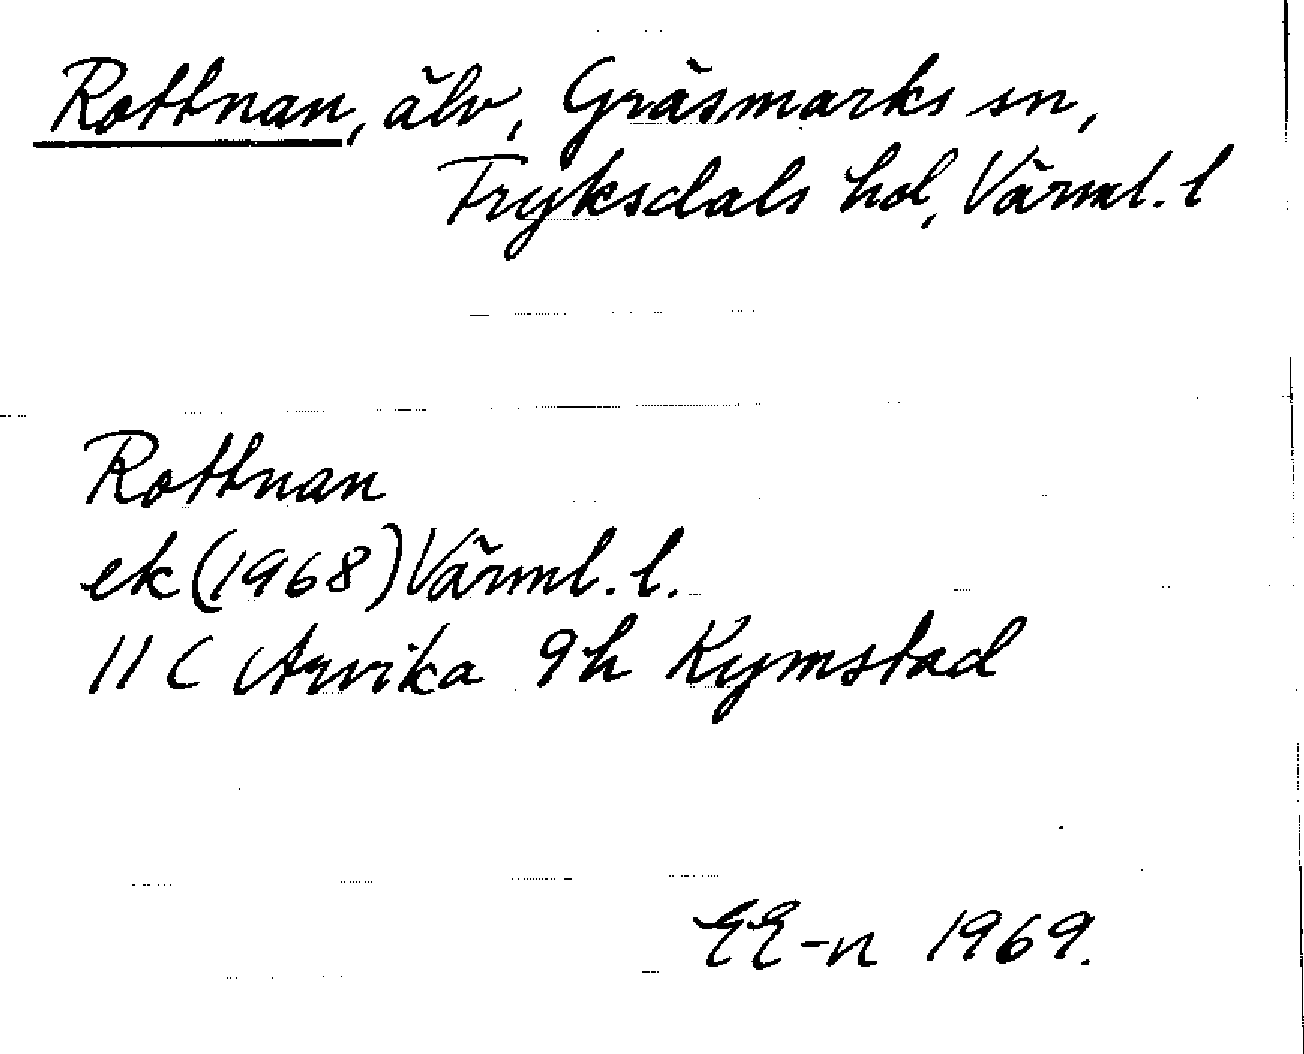 Rottnan, älv, Gräsmarks sn,
Fryksdals hd, Värml. l
Rottnan
ek (1968) Värml. l.
11 C Arvika 9h Kymstad
EE-n 1969.